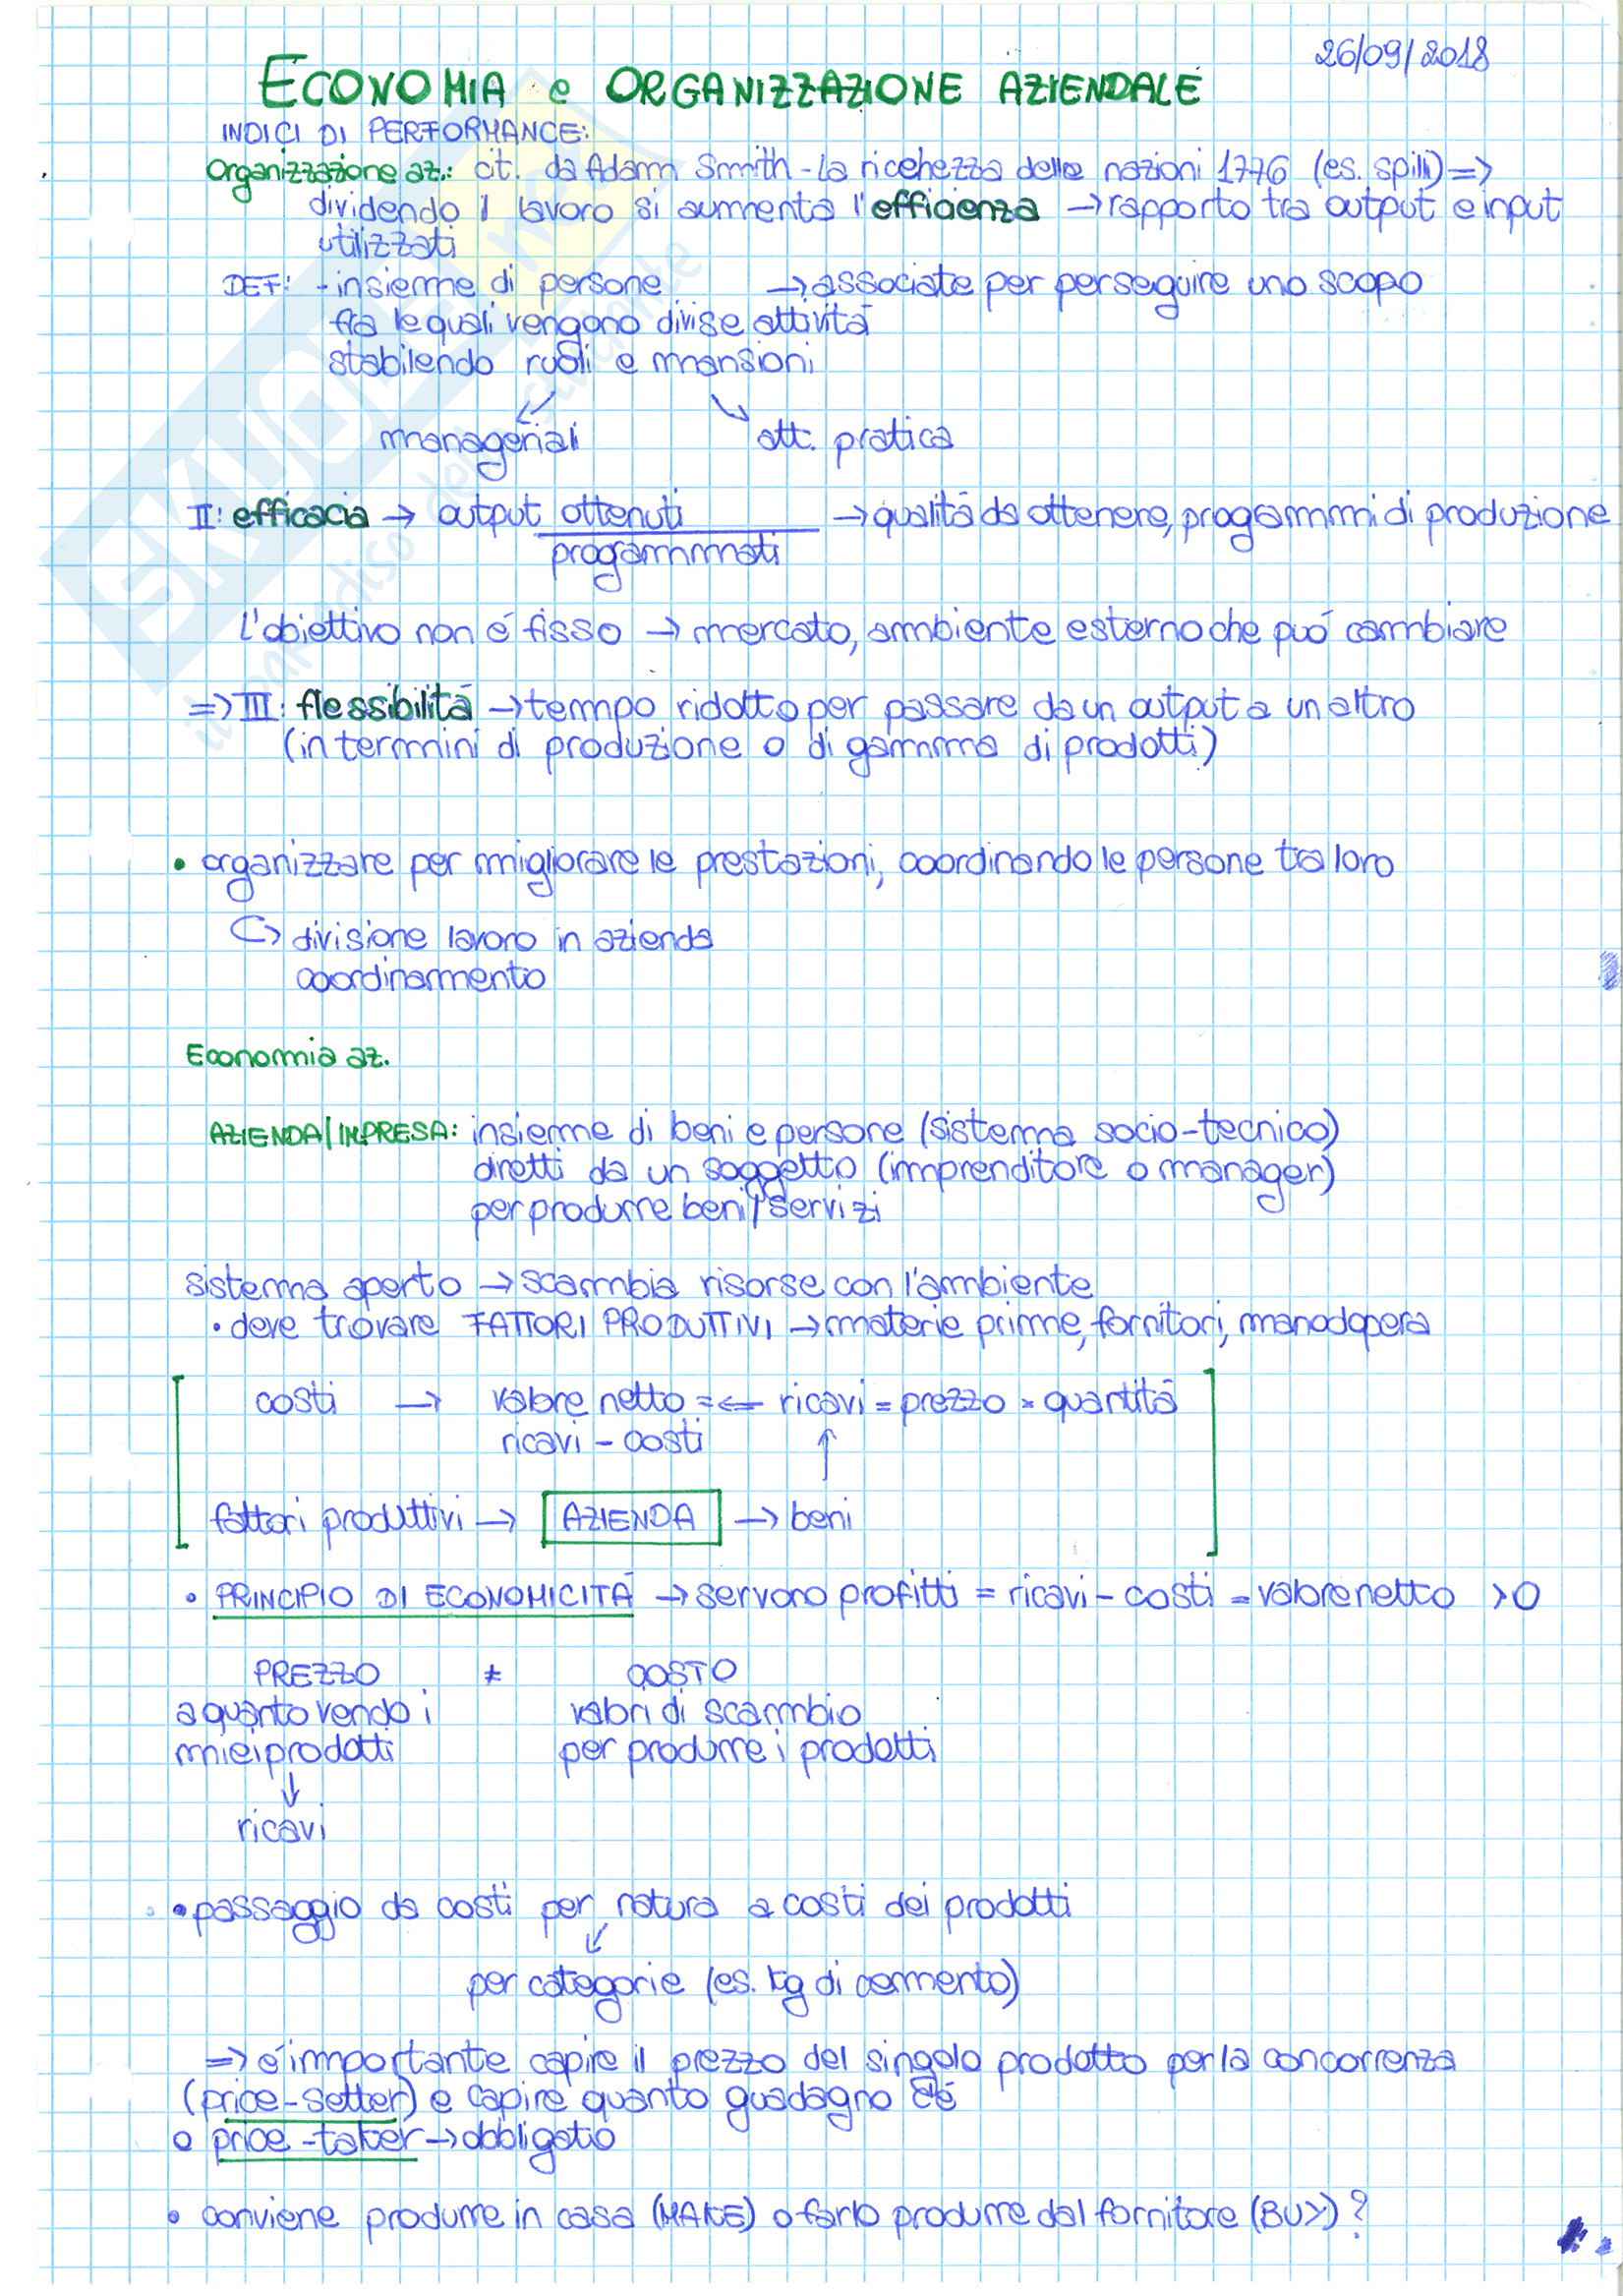 26/09/2018
ECONOMIA e ORGANIZZAZIONE AZIENDALE
INDICI DI PERFORMANCE:
Organizzazione az.: cit. da Adam Smith - la ricchezza delle nazioni 1776 (es. spilli) =>
dividendo il lavoro si aumenta l'efficienza → rapporto tra output e input
utilizzati
DEF: - insieme di persone → associate per perseguire uno scopo
fra le quali vengono divise attività
stabilendo ruoli e mansioni
manageriali att. pratica
II: efficacia → output ottenuti → qualità da ottenere, programmi di produzione
programmati
L'obiettivo non é fisso → mercato, ambiente esterno che puó cambiare
=> III: flessibilità → tempo ridotto per passare da un output a un altro
(in termini di produzione o di gamma di prodotti)
• organizzare per migliorare le prestazioni, coordinando le persone tra loro
↪ divisione lavoro in azienda
coordinamento
Economia az.
AZIENDA/IMPRESA: insieme di beni e persone (sistema socio-tecnico)
diretti da un soggetto (imprenditore o manager)
per produrre beni/servizi
sistema aperto → scambia risorse con l'ambiente
• deve trovare FATTORI PRODUTTIVI → materie prime, fornitori, manodopera
costi → valore netto = ← ricavi = prezzo × quantità
ricavi - costi ↑
fattori produttivi → AZIENDA → beni
• PRINCIPIO DI ECONOMICITÀ → servono profitti = ricavi - costi = valore netto > 0
PREZZO ≠ COSTO
a quanto vendo i valori di scambio
miei prodotti per produrre i prodotti
↓
ricavi
• passaggio da costi per natura a costi dei prodotti
per categorie (es. kg di cemento)
=> é importante capire il prezzo del singolo prodotto per la concorrenza
(price-setter) e capire quanto guadagno c'é
o price-taker → obbligato
• conviene produrre in casa (MAKE) o farlo produrre dal fornitore (BUY)?